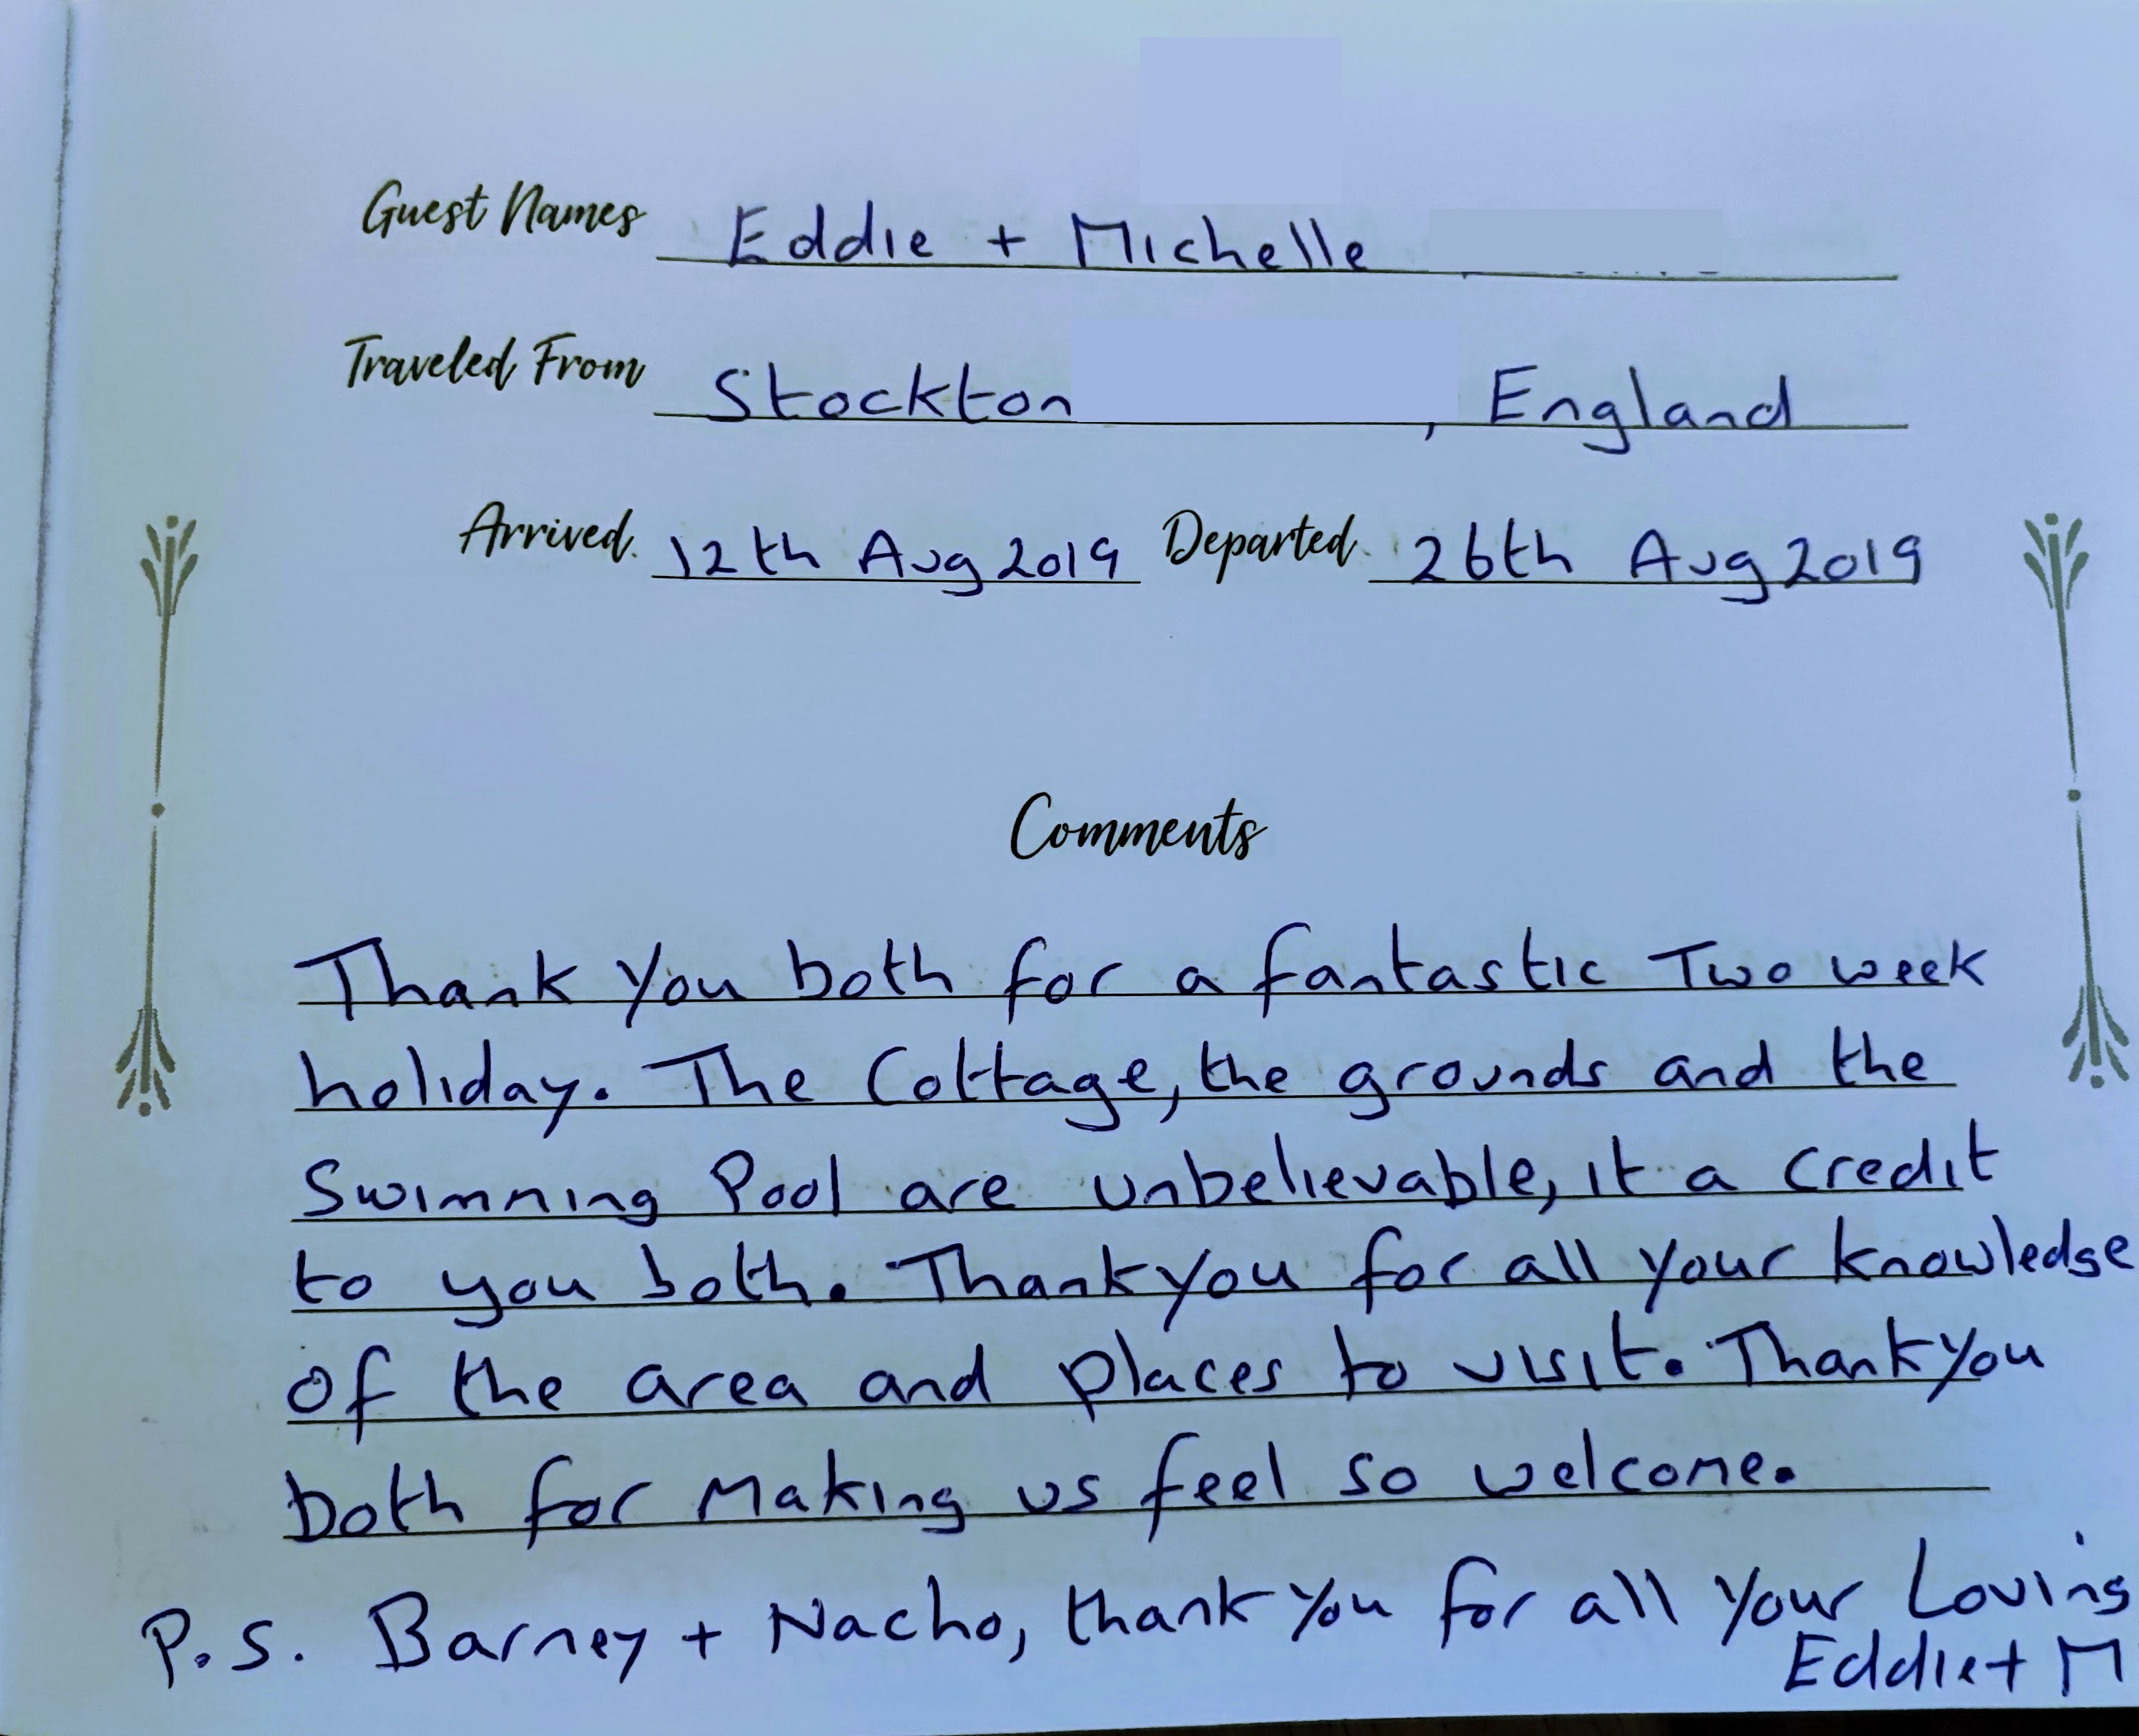 Guest Names Eddie + Michelle
Traveled From Stockton , England
Arrived 12th Aug 2019 Departed 26th Aug 2019
Comments
Thank you both for a fantastic Two week
holiday. The Cottage, the grounds and the
Swimming Pool are unbelievable, it a credit
to you both. Thank you for all your knowledge
of the area and places to visit. Thank you
both for Making us feel so welcome.
P.S. Barney + Nacho, thank you for all your Loving
Eddie + M